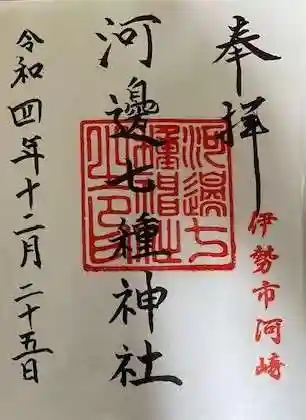 奉拝
伊勢市河崎
河邊七種神社
河邊七種神社之印
令和四年十二月二十五日